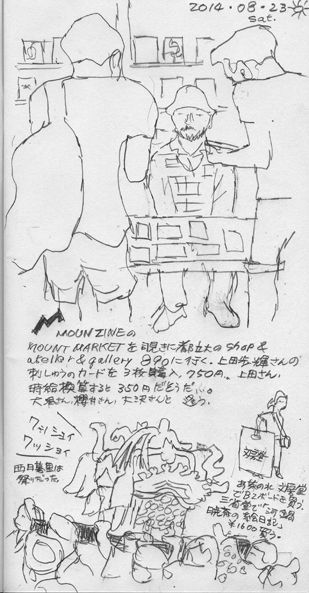 2014・08・23
sat.
MOUNZINEの
MOUNT MARKETを覗きに都立大のshop &
atelier & gallery 890に行く。上田歩輝さんの
刺しゅうのカードを3枚購入、750円。上田さん、
時給換算すると350円だそうだ…。
さん、櫻井さん、大沢さんと 逢う。
ワッショイ
ワッショイ
西日暮里は
祭りだった
文房堂
お絵の北 文房堂
でB2ボードを買う。
三省堂で
の絵日記
¥1600 買う。